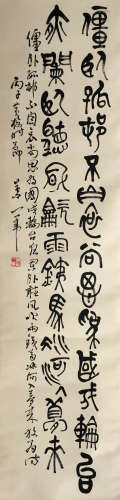 僵臥孤邨不自哀尚思為國戍輪台
夜闌臥聽風吹雨鐵馬冰河入夢來
僵臥孤邨不自哀尚思為國戍輪台夜闌臥聽風吹雨鐵馬冰河入夢來放翁詩
丙子